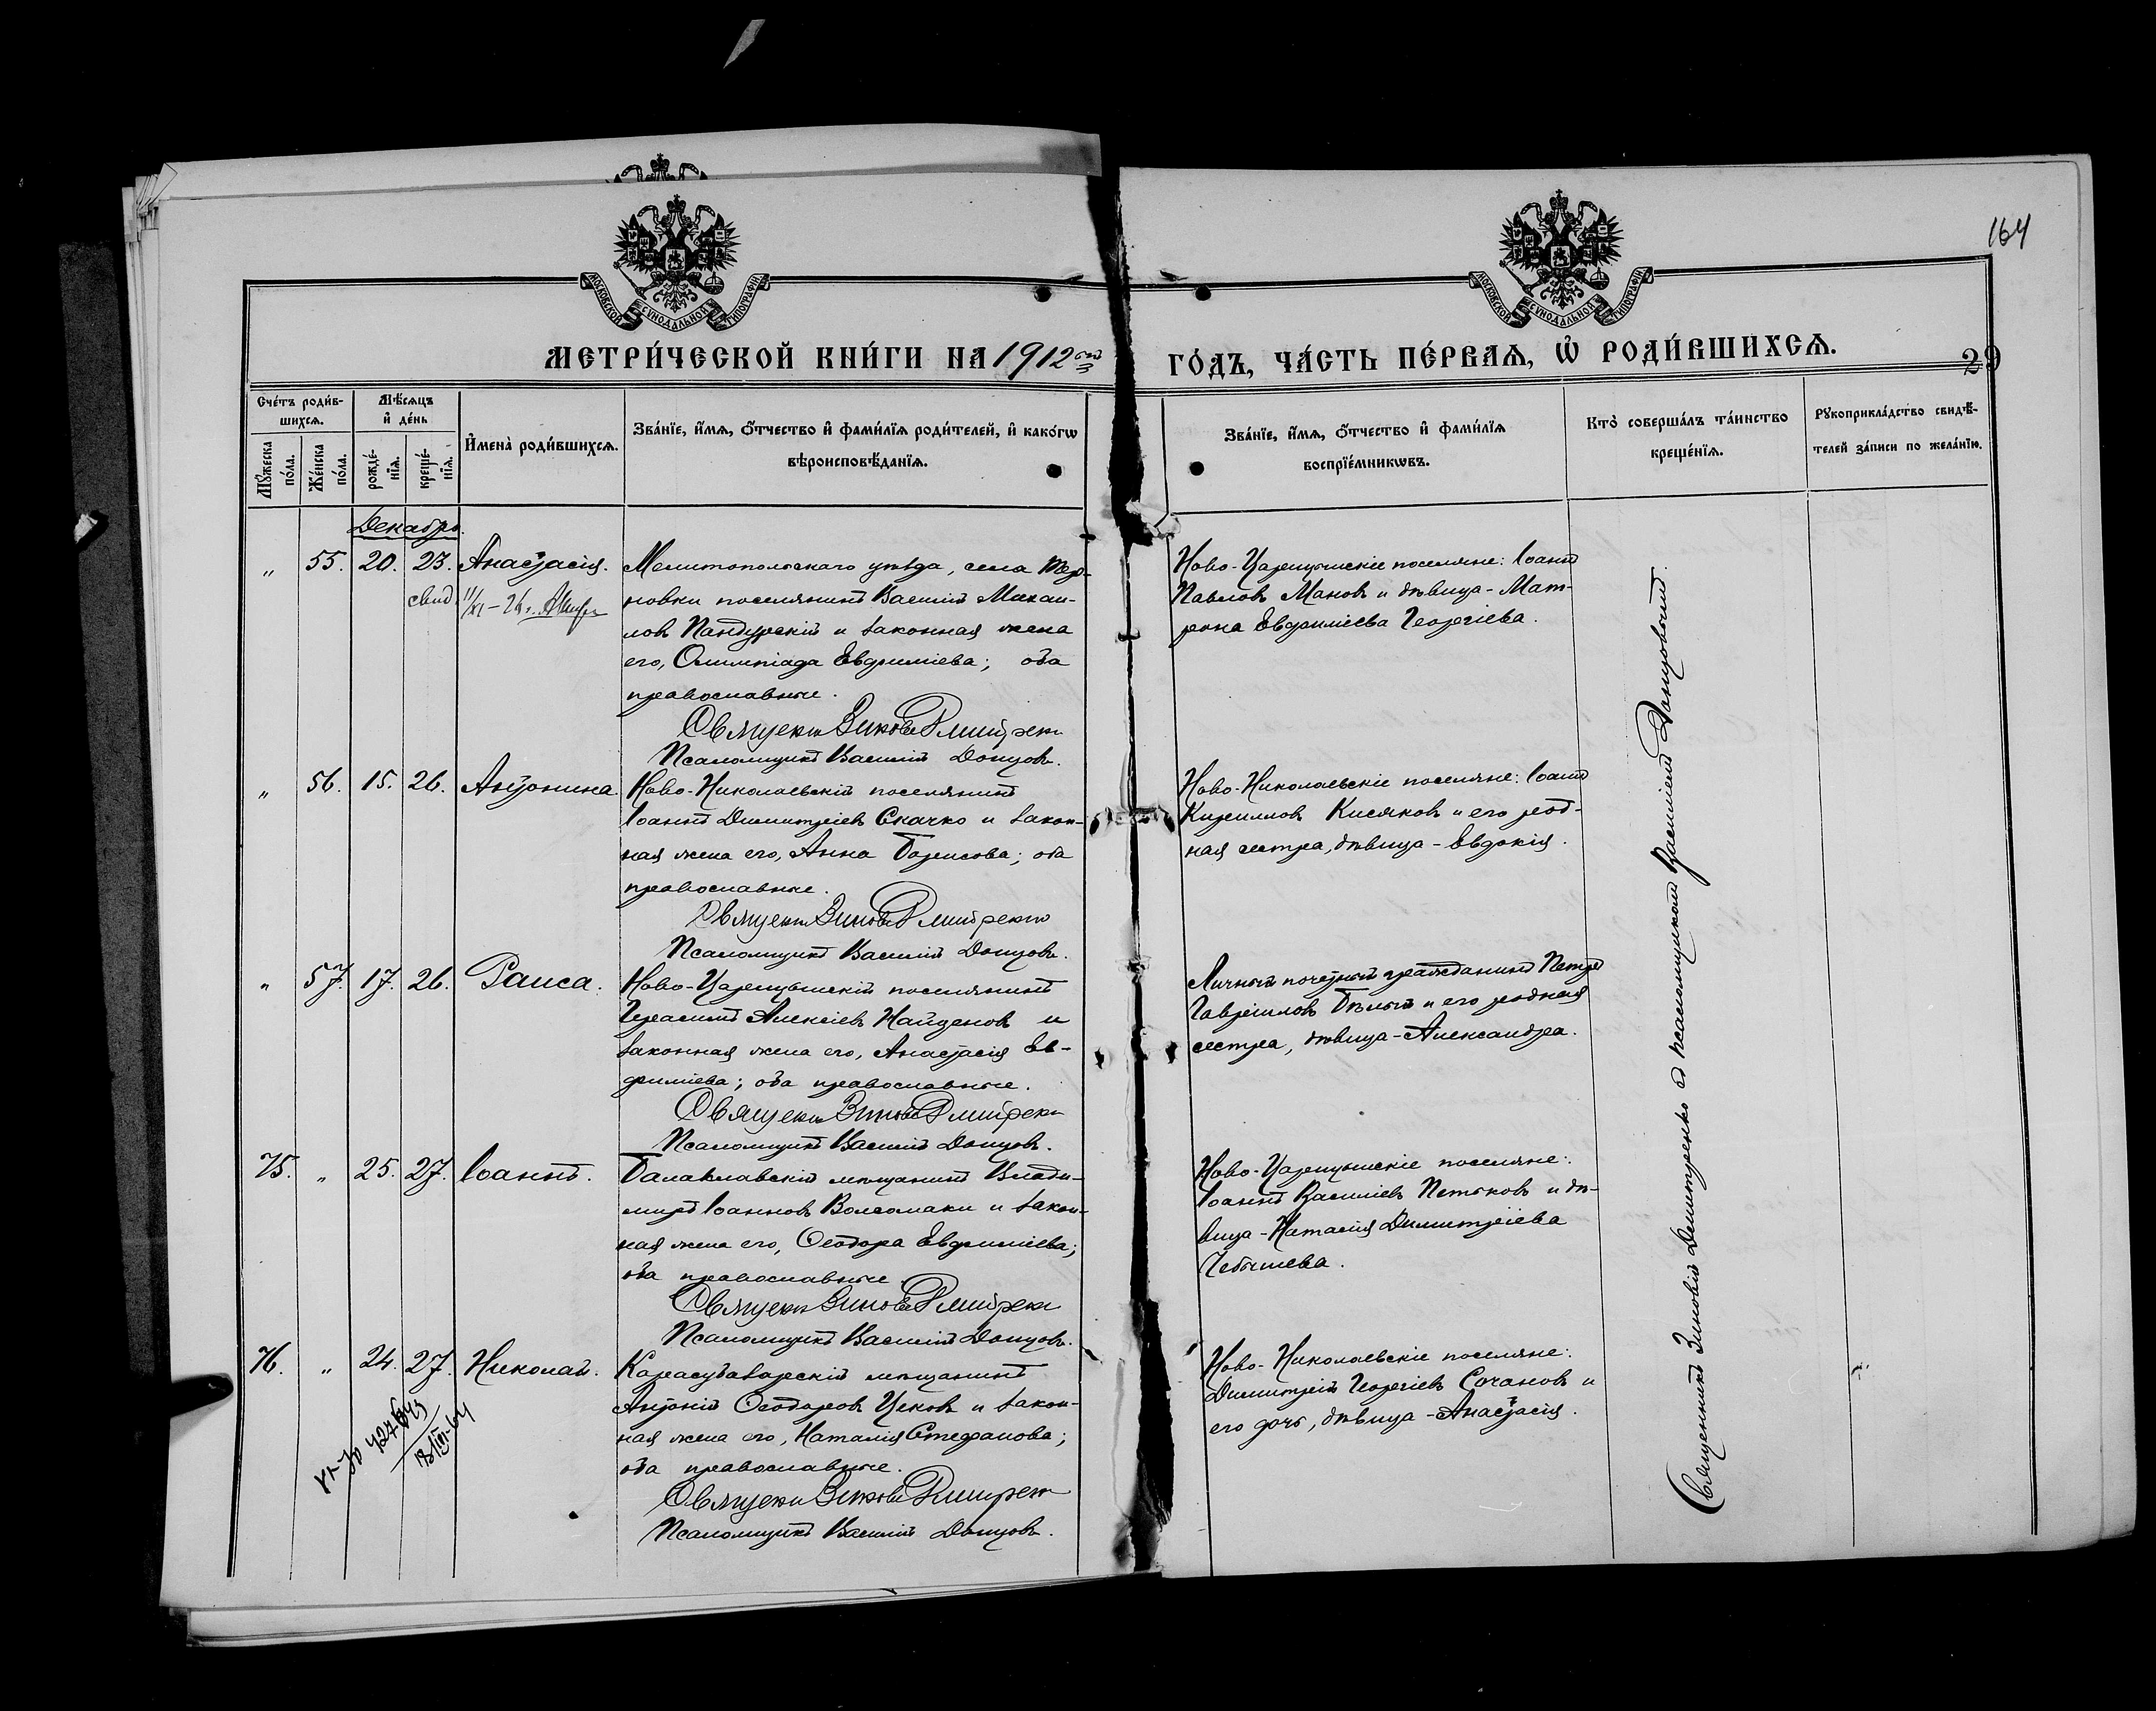 164
МОСКОВСКОЙ СѴНОДАЛЬНОЙ ТИПОГРАФІИ
МОСКОВСКОЙ СѴНОДАЛЬНОЙ ТИПОГРАФІИ
МЕТРИ́ЧЕСКОЙ КНИ́ГИ НА 1912ый ГО́ДЪ, ЧА́СТЬ ПЕ́РВАѦ, Ѡ҆ РОДИ́ВШИХСѦ.
29
Сче́тъ роди́в-
шихсѧ.
Мꙋ́жеска по́ла.
Же́нска по́ла.
Мѣ́сѧцъ
и҆ де́нь
рожде́-нїѧ.
креще́-нїѧ.
И҆мена̀ роди́вшихсѧ.
Зва́нїе, и҆́мѧ, ѻ҆́тчество и҆ фами́лїѧ роди́телей, и҆ како́гѡ
вѣроисповѣ́данїѧ.
Зва́нїе, и҆́мѧ, ѻ҆́тчество и҆ фами́лїѧ
воспрїе́мникѡвъ.
Кто̀ соверша́лъ та́инство
креще́нїѧ.
Рꙋкоприкла́дство свидѣ́-
телей за́писи по жела́нїю.
Декабрь.
" 55. 20. 23. Анастасія.
свид. 11/XI – 26 г.
Мелитопольскаго уѣзда, села Тер-
новки поселянинъ Василій Михаи-
ловъ Пандурскій и законная жена
его, Олимпіада Евфиміева; оба
православные.
Священ. Зиновій Дмитренко
Псаломщикъ Василій Донцовъ.
Ново-Царицынскіе поселяне: Іоаннъ
Павловъ Мановъ и дѣвица - Мат-
рона Евфиміева Георгіева.
" 56. 15. 26. Антонина.
Ново-Николаевскій поселянинъ
Іоаннъ Димитріевъ Скачко и закон-
ная жена его, Анна Борисова; оба
православные.
Священ. Зиновій Дмитренко
Псаломщикъ Василій Донцовъ.
Ново-Николаевскіе поселяне: Іоаннъ
Кирилловъ Кисяковъ и его род-
ная сестра, дѣвица - Евдокія.
" 57. 17. 26. Раиса.
Ново-Царицынскій поселянинъ
Герасимъ Алексіевъ Найденовъ и
законная жена его, Анастасія Ев-
фиміева; оба православные.
Священ. Зиновій Дмитренко
Псаломщикъ Василій Донцовъ.
Личный почетный гражданинъ Петръ
Гавріиловъ Бѣлый и его родная
сестра, дѣвица - Александра.
75. " 25. 27. Іоаннъ.
Балаклавскій мѣщанинъ Влади-
миръ Іоанновъ Волсомаки и закон-
ная жена его, Ѳеодора Евфиміева;
оба православные.
Священ. Зиновій Дмитренко
Псаломщикъ Василій Донцовъ.
Ново-Царицынскіе поселяне:
Іоаннъ Василіевъ Петьковъ и дѣ-
вица - Наталія Димитріева
Чебышева.
76. " 24. 27. Николай.
Карасубазарскій мѣщанинъ
Антоній Ѳеодоровъ Цековъ и закон-
ная жена его, Наталія Стефанова;
оба православные.
Священ. Зиновій Дмитренко
Псаломщикъ Василій Донцовъ.
Ново-Николаевскіе поселяне:
Димитрій Георгіевъ Сочановъ и
его дочь, дѣвица - Анастасія.
Священникъ Зиновій Димитренко съ псаломщикомъ Василіемъ Донцовымъ.